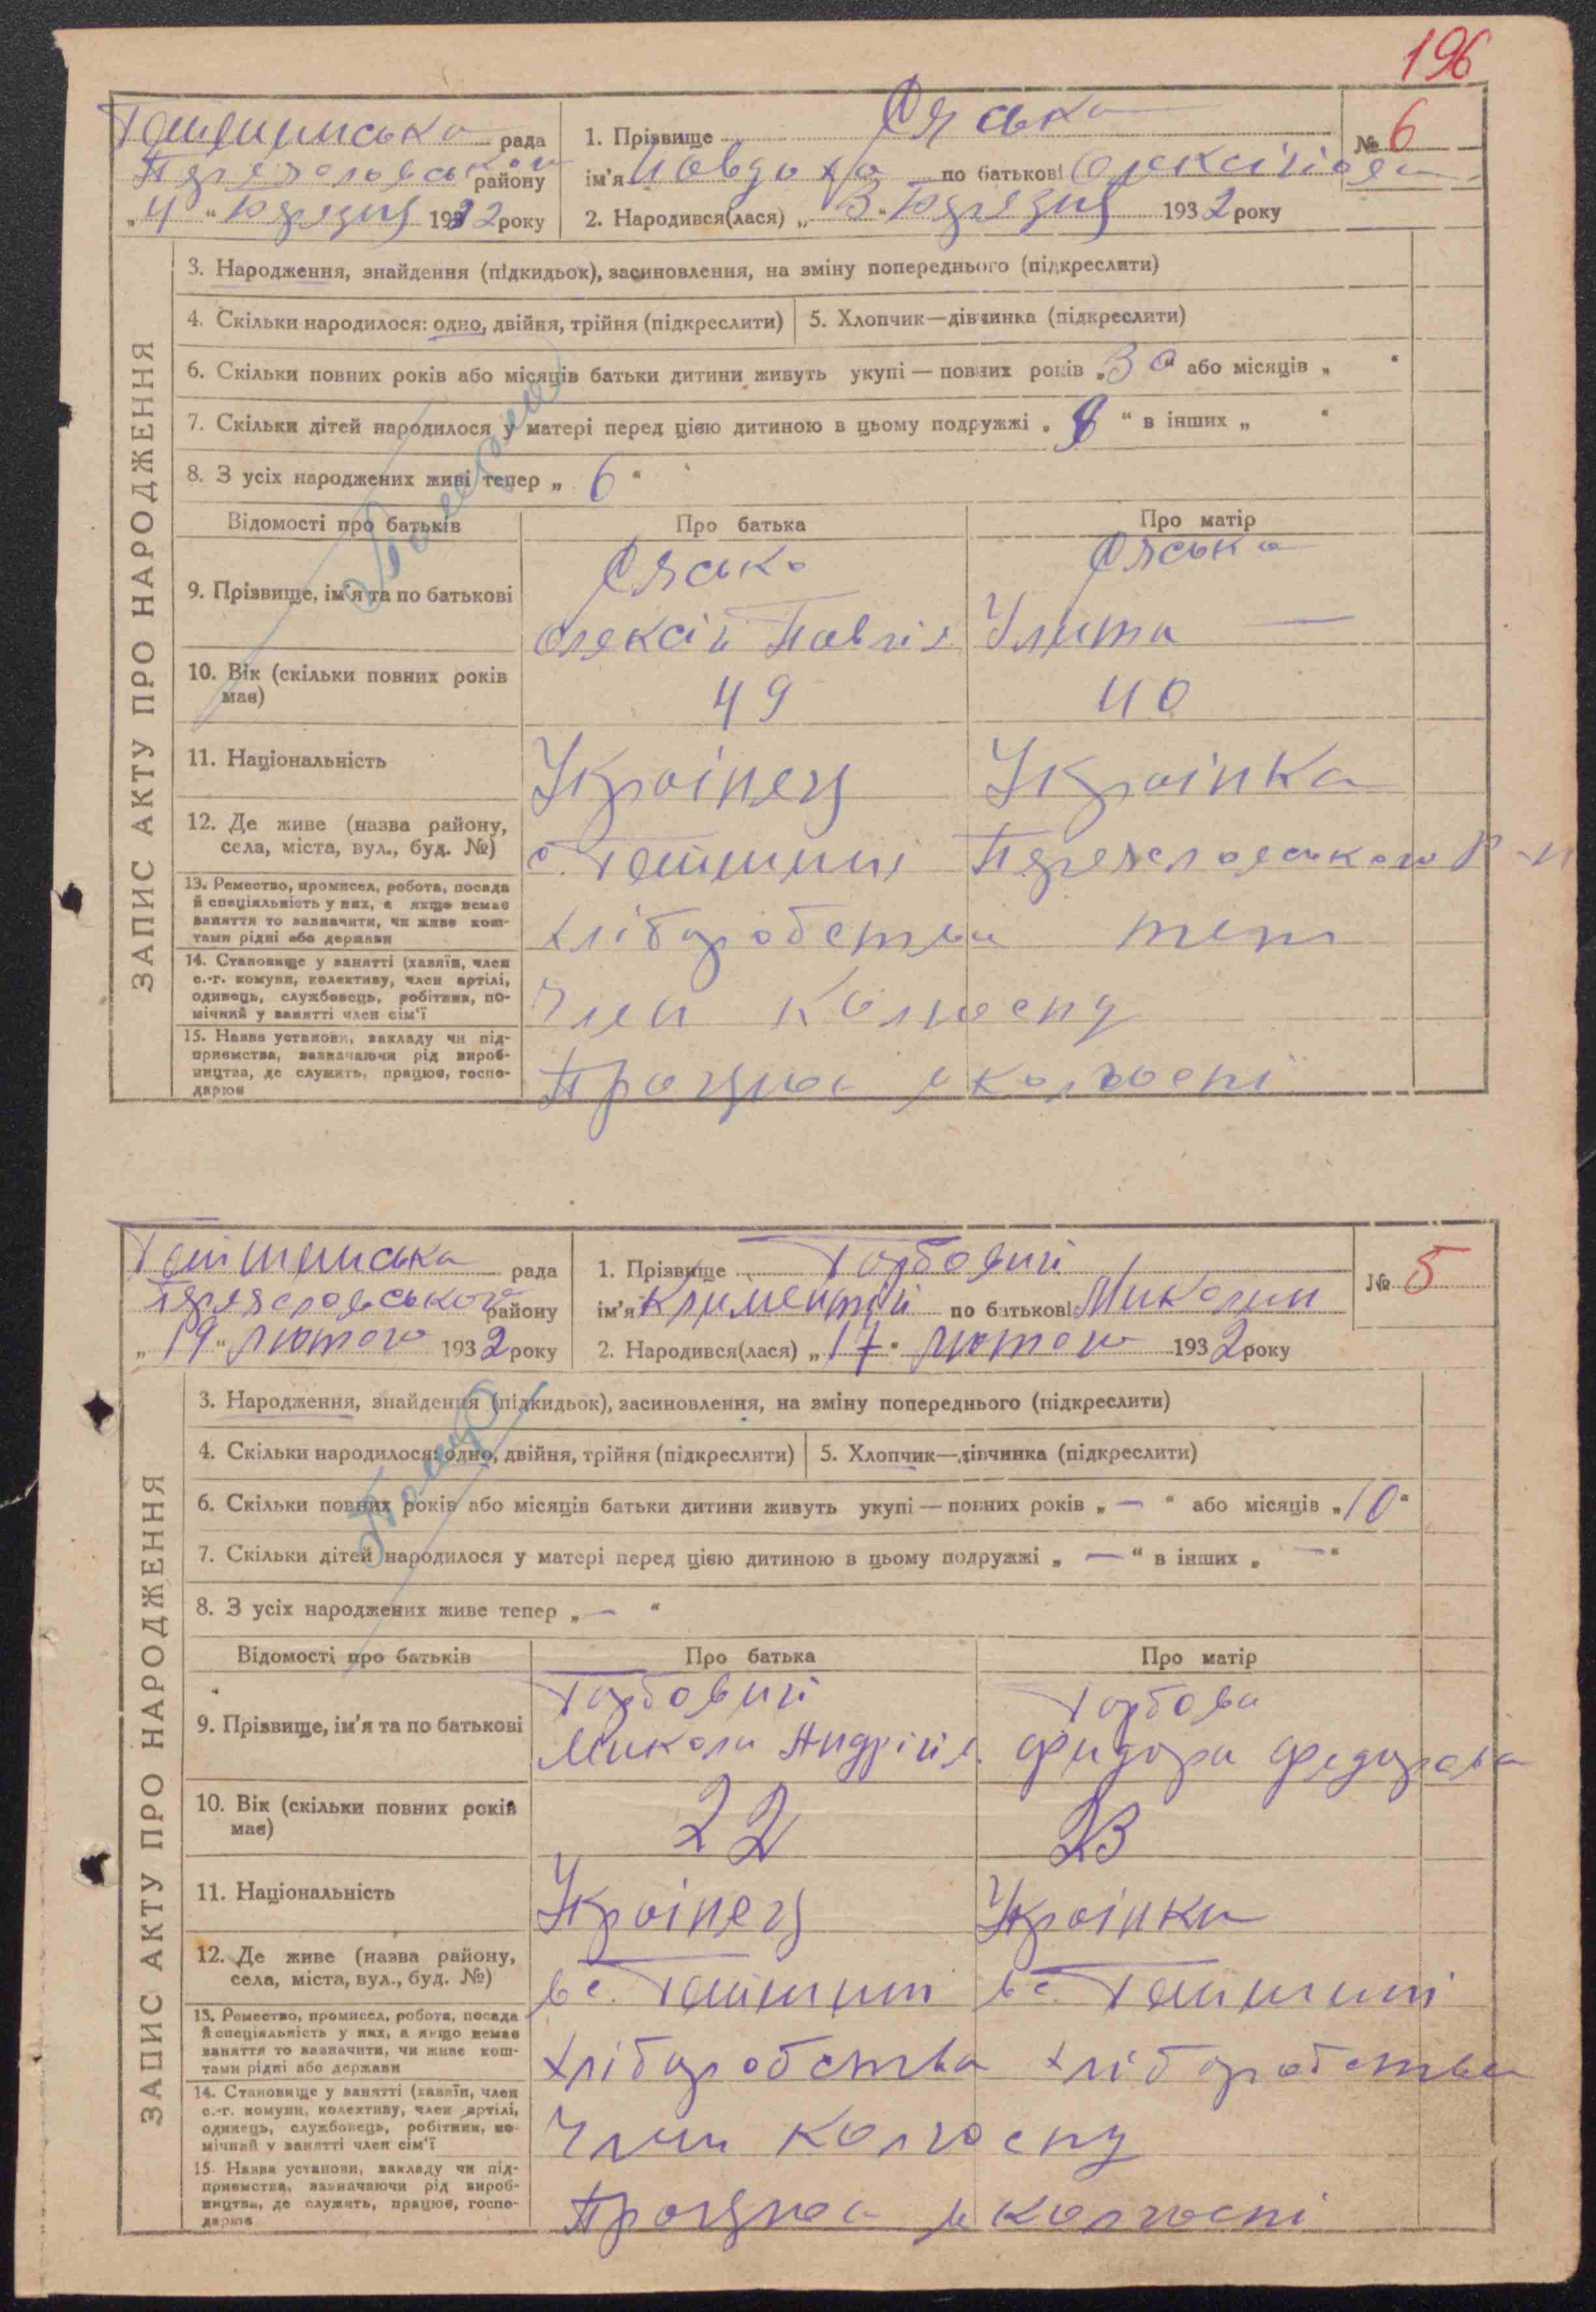 196
рада
1. Прізвище
№ 6
району
ім'я Явдоха по батькові Олексіїовна
"4" 1932 року
2. Народився(лася) "3" 1932 року
ЗАПИС АКТУ ПРО НАРОДЖЕННЯ
3. Народження, знайдення (підкидьок), засиновлення, на зміну попереднього (підкреслити)
4. Скільки народилося: одно, двійня, трійня (підкреслити)
5. Хлопчик—дівчинка (підкреслити)
6. Скільки повних років або місяців батьки дитини живуть укупі — повних років „30“ або місяців „ “
7. Скільки дітей народилося у матері перед цією дитиною в цьому подружжі „ “ в інших „ “
8. З усіх народжених живі тепер „6“
Відомості про батьків
Про батька
Про матір
9. Прізвище, ім'я та по батькові
Олексій Павлів
Улита —
10. Вік (скільки повних років має)
49
40
11. Національність
Украінец
Украінка
12. Де живе (назва району, села, міста, вул., буд. №)
13. Ремество, промисел, робота, посада
й спеціяльність у них, а якщо немає
заняття то зазначити, чи живе кош-
тами рідні або держави
хліборобство
теж
14. Становище у занятті (хазяїн, член
с.-г. комуни, колективу, член артілі,
одинець, службовець, робітник, по-
мічний у занятті член сім'ї
Член колгоспу
15. Назва установи, закладу чи під-
приємства, зазначаючи рід вироб-
ництва, де служить, працює, госпо-
дарює
Працює в колгоспі
рада
1. Прізвище Горбовий
№ 5
району
ім'я Климентій по батькові Миколин
„19“ лютого 1932 року
2. Народився(лася) „17“ лютого 1932 року
ЗАПИС АКТУ ПРО НАРОДЖЕННЯ
3. Народження, знайдення (підкидьок), засиновлення, на зміну попереднього (підкреслити)
4. Скільки народилося: одно, двійня, трійня (підкреслити)
5. Хлопчик—дівчинка (підкреслити)
6. Скільки повних років або місяців батьки дитини живуть укупі — повних років „—“ або місяців „10“
7. Скільки дітей народилося у матері перед цією дитиною в цьому подружжі „—“ в інших „—“
8. З усіх народжених живе тепер „—“
Відомості про батьків
Про батька
Про матір
9. Прізвище, ім'я та по батькові
Горбовий
Микола Андрій.
Горбова
Фидора Федорова
10. Вік (скільки повних років має)
22
23
11. Національність
Украінец
Украінка
12. Де живе (назва району, села, міста, вул., буд. №)
13. Ремество, промисел, робота, посада
й спеціяльність у них, а якщо немає
заняття то зазначити, чи живе кош-
тами рідні або держави
хліборобства
хліборобства
14. Становище у занятті (хазяїн, член
с.-г. комуни, колективу, член артілі,
одинець, службовець, робітник, по-
мічний у занятті член сім'ї
Член колгоспу
15. Назва установи, закладу чи під-
приємства, зазначаючи рід вироб-
ництва, де служить, працює, госпо-
дарює
Працює в колгоспі